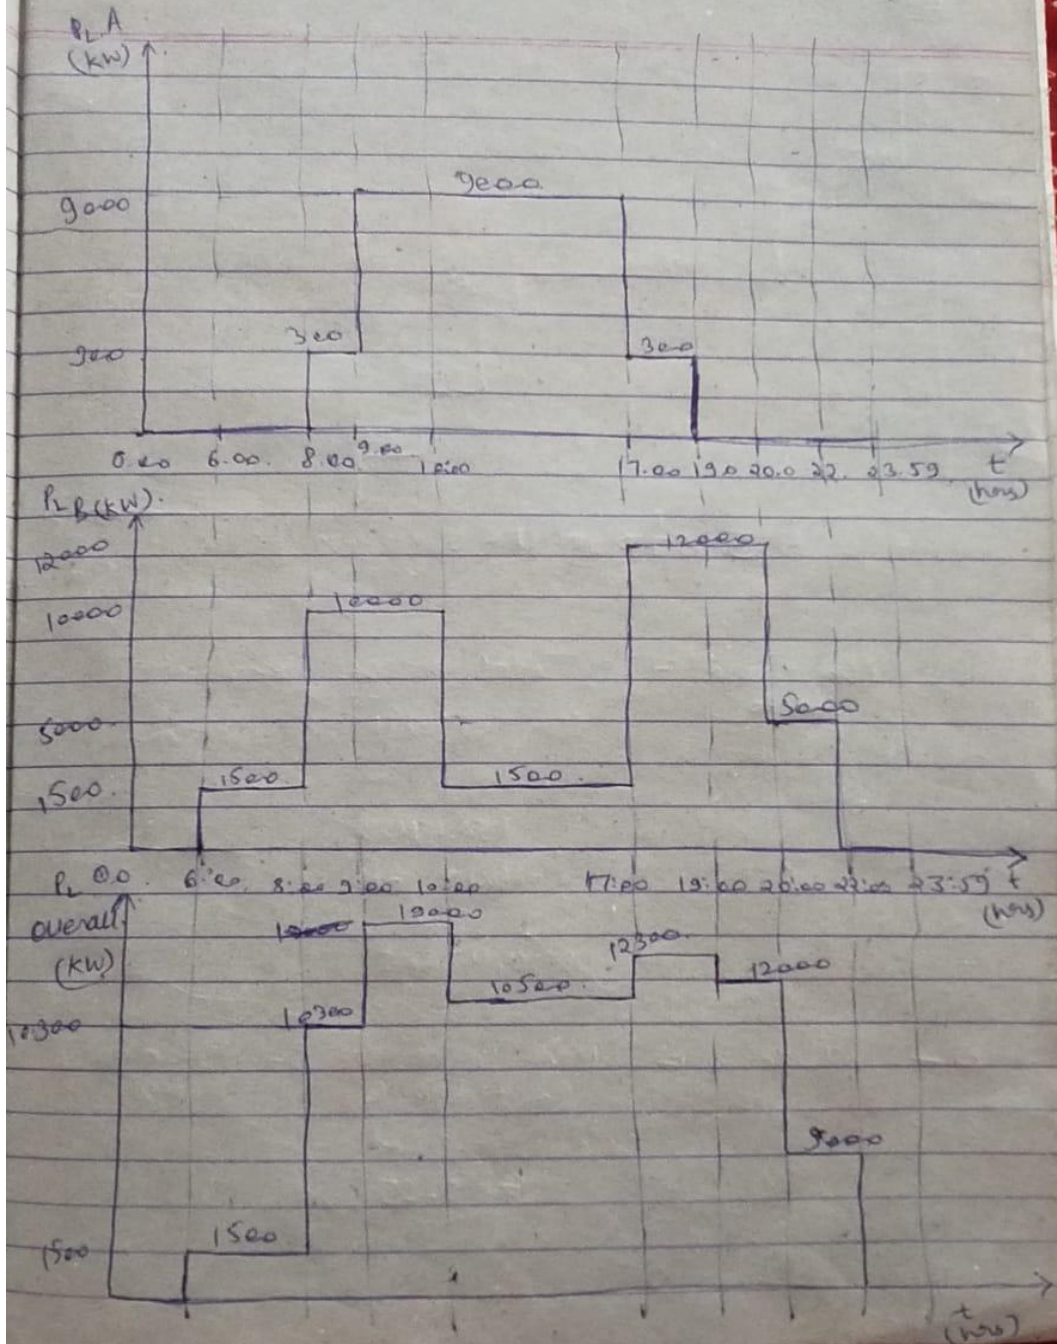 PL A
(KW)
9000
9000
300
300
300
0.00 6.00. 8.00 9.00 10:00 17.00 19.0 20.0 22. 23.59 t
(hrs)
PL B (KW).
12000
12000
10000
10000
5000
5000
1500
1500.
1500.
PL 0.0. 6:00. 8:00 9:00 10:00 17:00 19:00 20:00 22:00 23:59 t
(hrs)
overall
(KW)
19000
12300
12000
10500.
10300
10300
5000
1500
1500
t
(hrs)